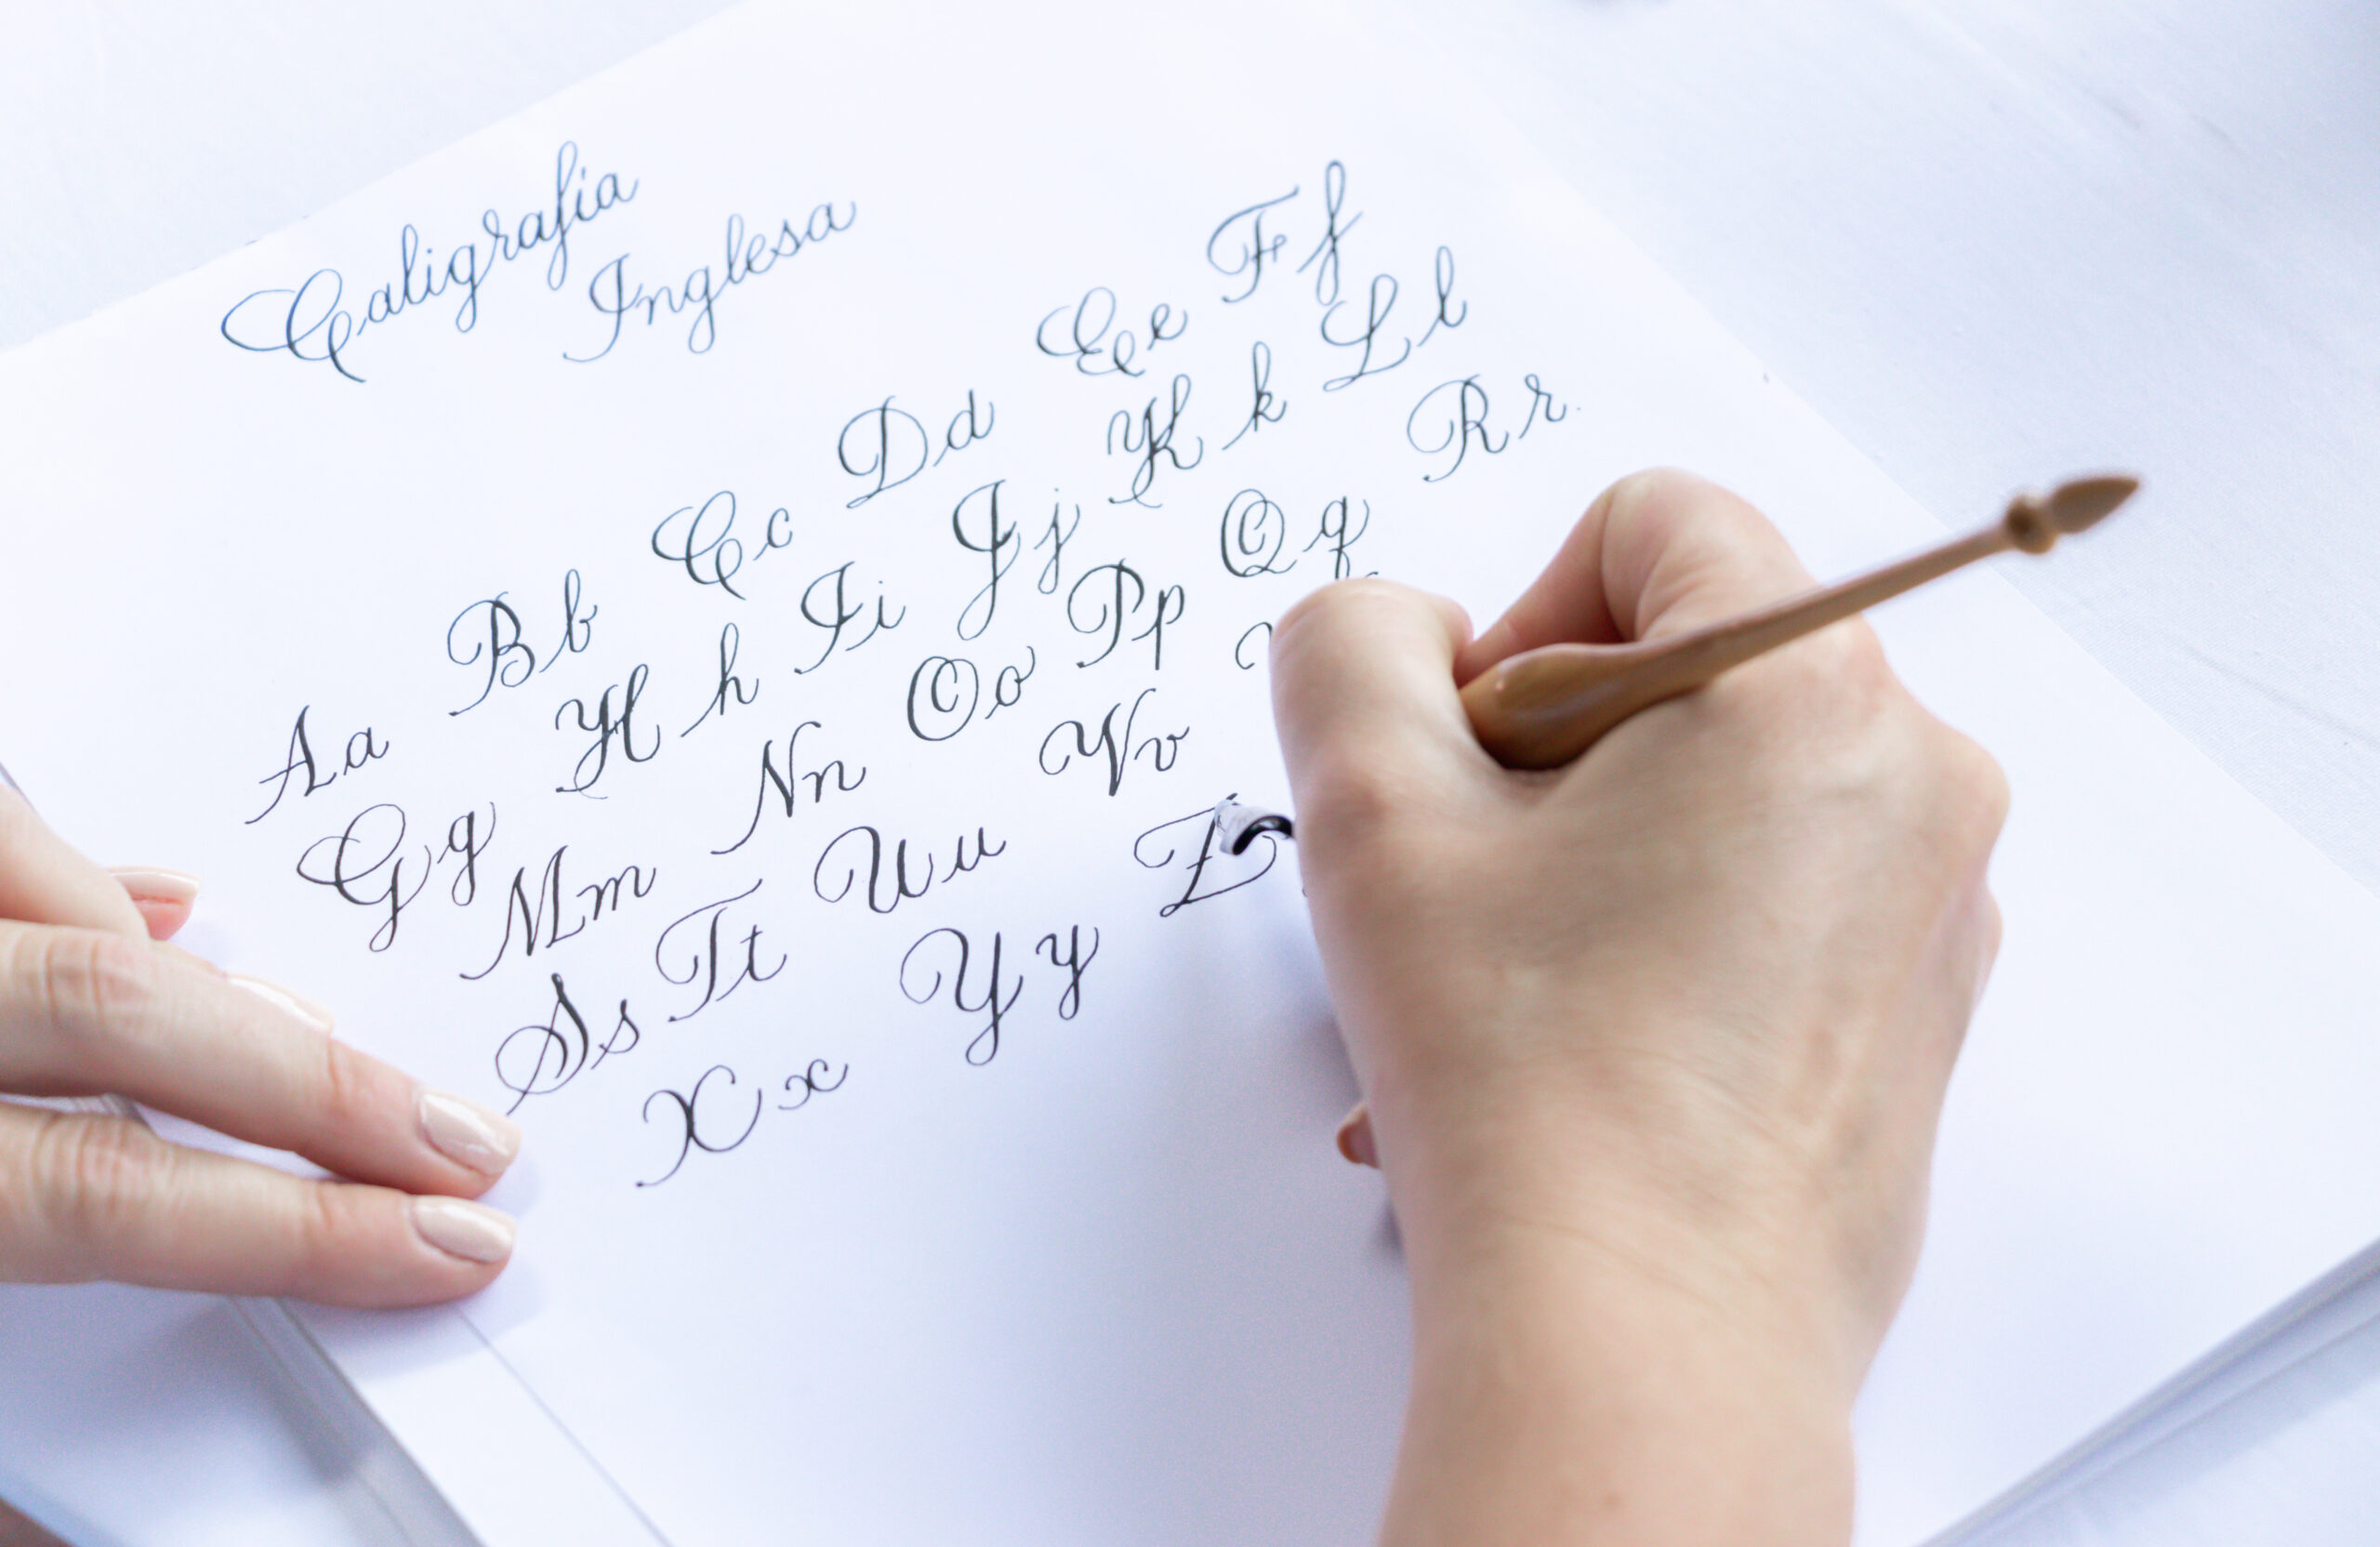 Caligrafia
Inglesa
Aa Bb Cc Dd Ee Ff
Gg Hh Ii Jj Kk Ll
Mm Nn Oo Pp Qq Rr
Ss Tt Uu Vv
Xx Yy Z